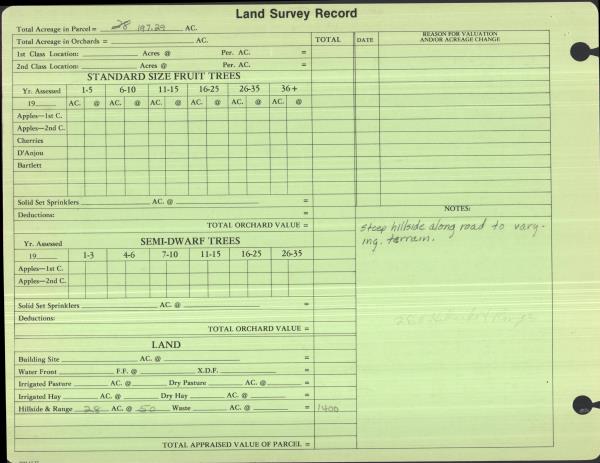 Land Survey Record
Total Acreage in Parcel = 28 197.29 AC.
Total Acreage in Orchards = AC. TOTAL DATE REASON FOR VALUATION AND/OR ACREAGE CHANGE
1st Class Location: Acres @ Per. AC. =
2nd Class Location: Acres @ Per. AC. =
STANDARD SIZE FRUIT TREES
Yr. Assessed 1-5 6-10 11-15 16-25 26-35 36+
19 AC. @ AC. @ AC. @ AC. @ AC. @ AC. @
Apples—1st C.
Apples—2nd C.
Cherries
D'Anjou
Bartlett
Solid Set Sprinklers AC. @ =
Deductions: =
TOTAL ORCHARD VALUE =
NOTES:
Steep hillside along road to vary-
ing terrain.
SEMI-DWARF TREES
Yr. Assessed
19 1-3 4-6 7-10 11-15 16-25 26-35
Apples—1st C.
Apples—2nd C.
Solid Set Sprinklers AC. @ =
Deductions:
TOTAL ORCHARD VALUE =
LAND
Building Site AC. @ =
Water Front F.F. @ X.D.F. =
Irrigated Pasture AC. @ Dry Pasture AC. @ =
Irrigated Hay AC. @ Dry Hay AC. @ =
Hillside & Range 28 AC. @ 50 Waste AC. @ = 1400
TOTAL APPRAISED VALUE OF PARCEL =